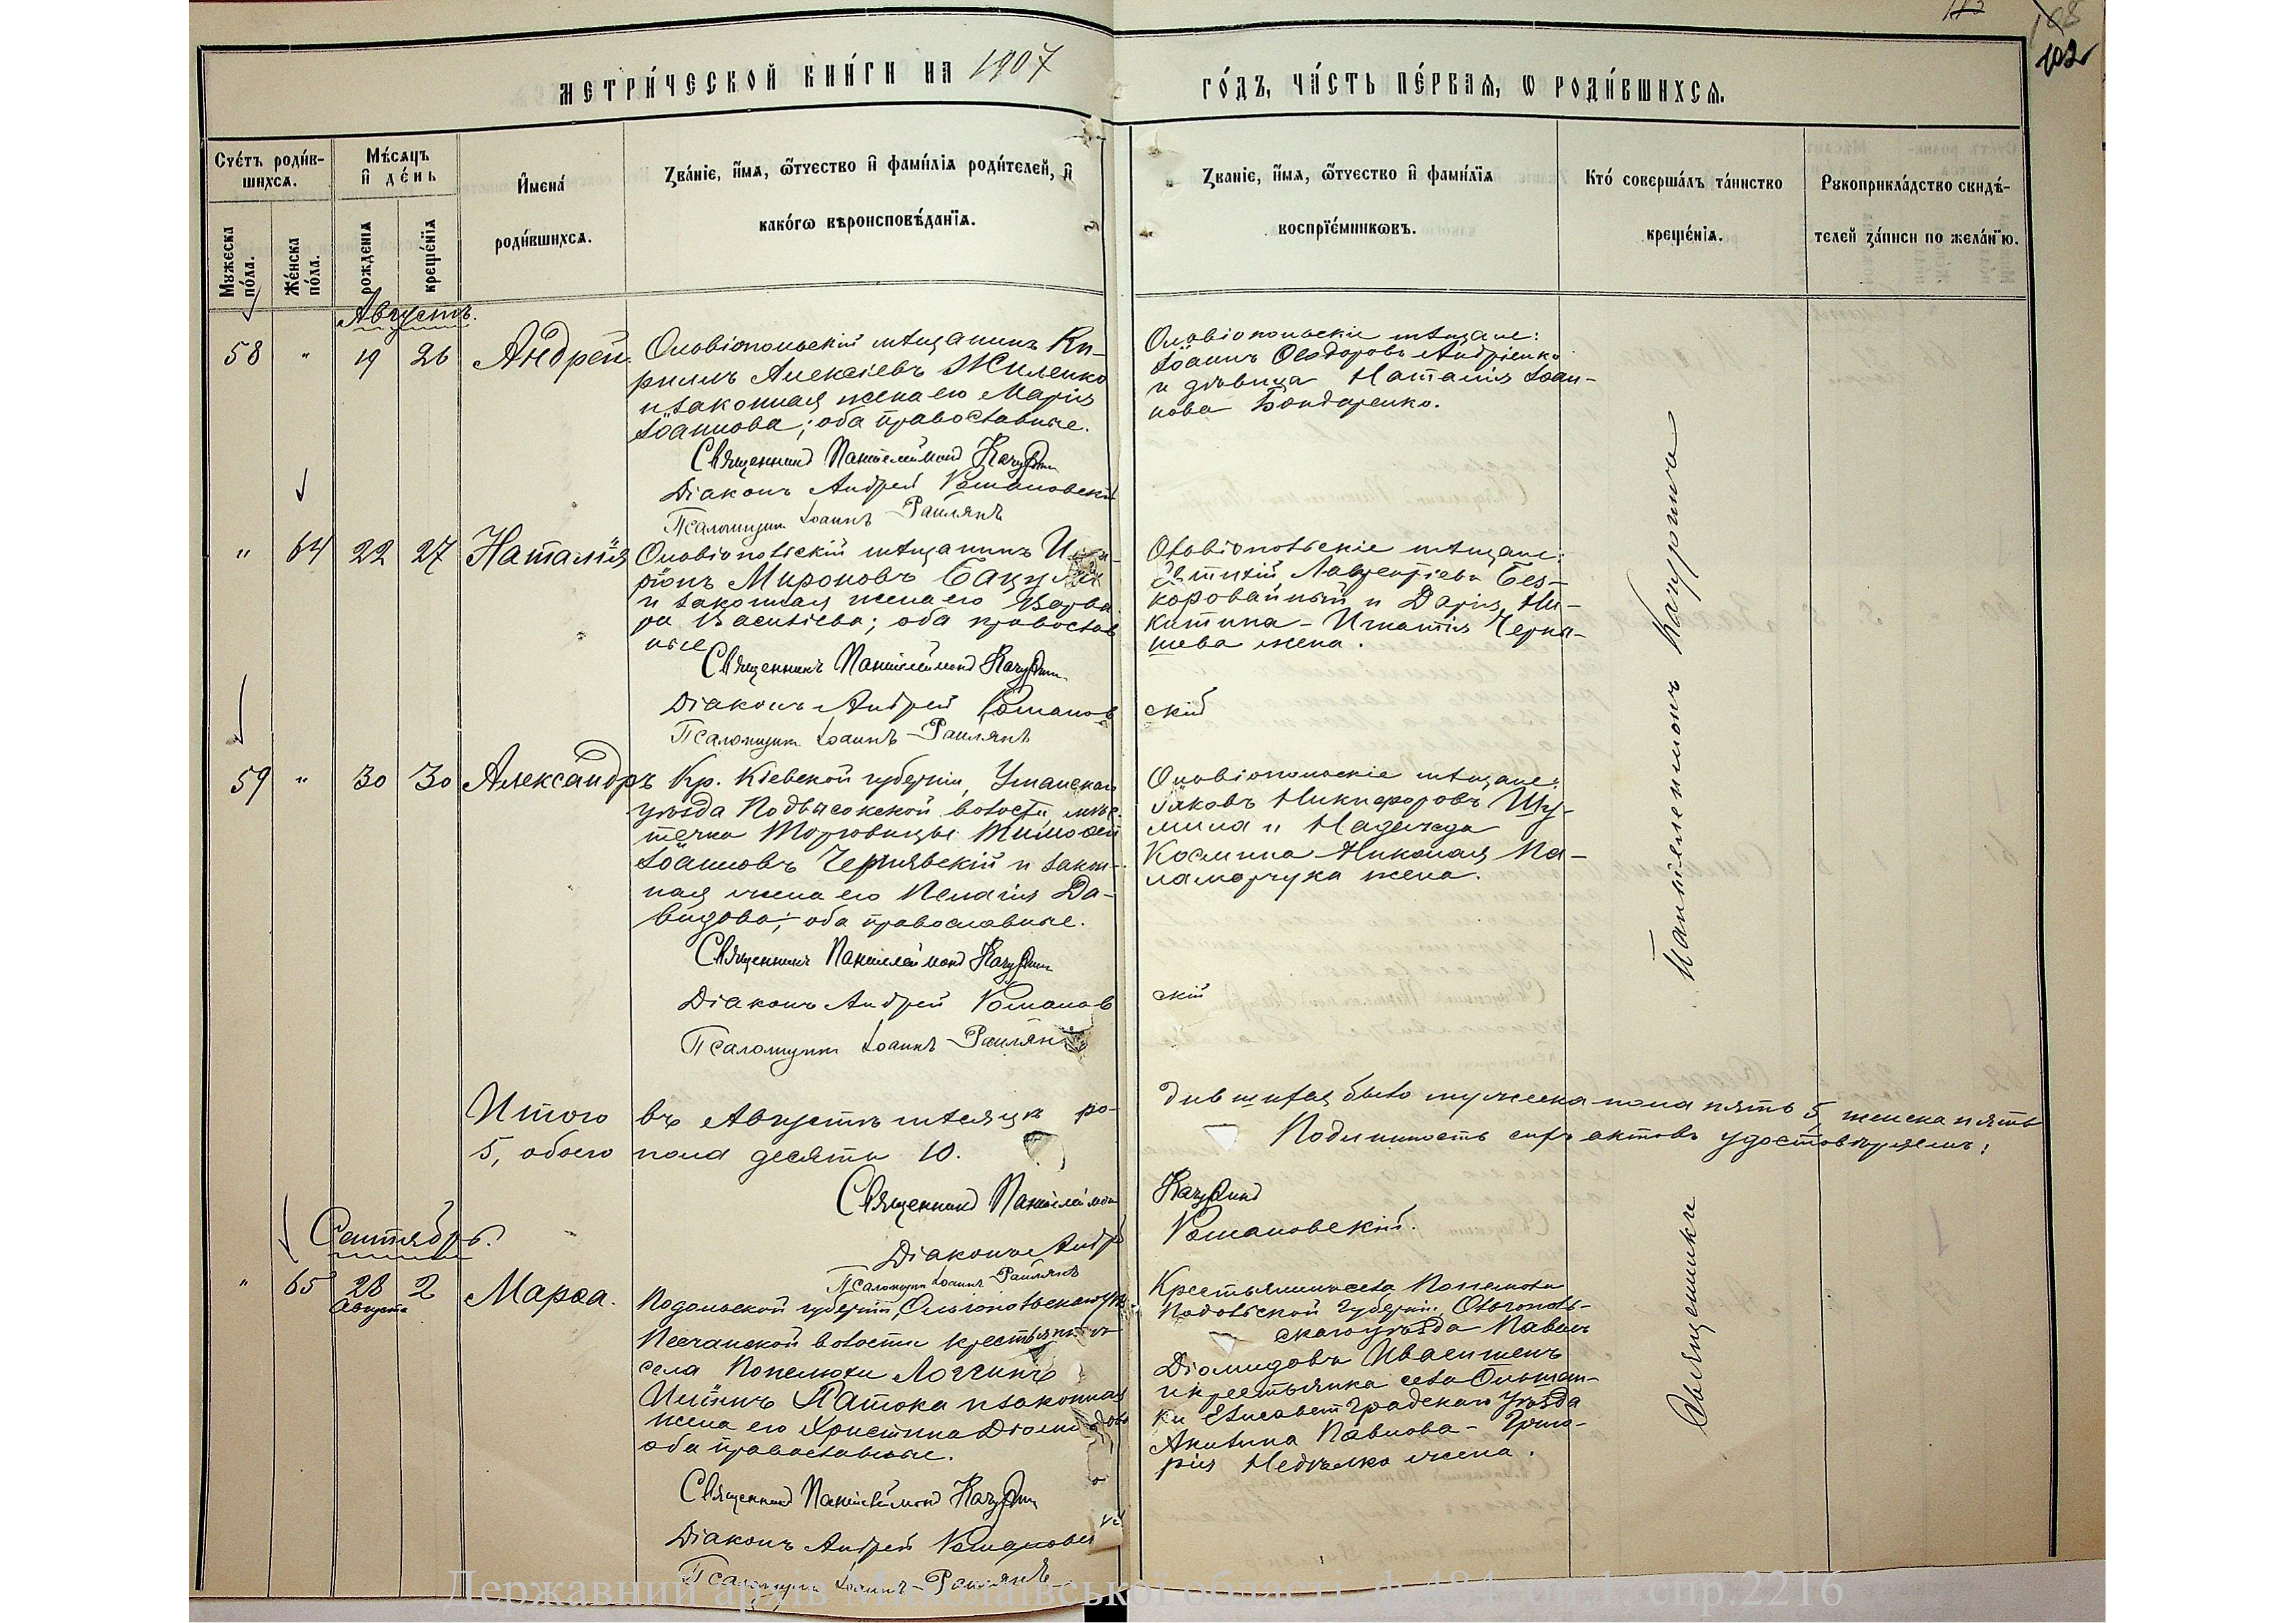 МЕТРИ́ЧЕСКОЙ КНИ́ГИ НА 1907 ГО́ДЪ, ЧА́СТЬ ПЕ́РВАѦ, Ѡ РОДИ́ВШИХСѦ.
102
Сче́тъ роди́в-
шихсѧ.
Мѣ́сѧцъ
и҆ де́нь
И҆мена́
роди́вшихсѧ.
Зва́нїе, и҆́мѧ, ѻ҆́тчество и҆ фами́лїѧ роди́телей, и҆
како́гѡ вѣроисповѣ́данїѧ.
Зва́нїе, и҆́мѧ, ѻ҆́тчество и҆ фами́лїѧ
воспрїе́мникѡвъ.
Кто́ соверша́лъ та́инство
креще́нїѧ.
Рꙋкоприкла́дство свидѣ́-
телей за́писи по жела́нїю.
Мꙋжеска
по́ла.
Же́нска
по́ла.
рожденїѧ
креще́нїѧ
Августъ.
58 " 19 26 Андрей.
Ольвіопольскій мѣщанинъ Ки-
риллъ Алексіевъ Жиленко
и законная жена его Марія
Іоаннова; оба православные.
Священникъ Пантелеймонъ Качуринъ
Діаконъ Андрей Романовскій
Псаломщикъ Іоаннъ Раилянъ
Ольвіопольскіе мѣщане:
Іоаннъ Ѳеодоровъ Андріенко
и дѣвица Наталія Іоан-
нова Бондаренко.
" 64 22 27 Наталія
Ольвіопольскій мѣщанинъ
Мироновъ
и законная жена его Варва-
ра Васильева; оба православ
ные
Священникъ Пантелеймонъ Качуринъ
Діаконъ Андрей Романовскій
Псаломщикъ Іоаннъ Раилянъ
Ольвіопольскіе мѣщане:
Евтихій Лаврентіевъ Без-
коровайный и Дарія Ни-
китина - Игнатія Черны-
шева жена.
59 " 30 30 Александръ
Кр. Кіевской губерніи, Уманскаго
уѣзда Подвысокской волости, мѣс-
течка Торговицы Тимоѳей
Іоанновъ Чернявскій и закон-
ная жена его Пелагія Да-
видова; оба православные.
Священникъ Пантелеймонъ Качуринъ
Діаконъ Андрей Романовскій
Псаломщикъ Іоаннъ Раилянъ
Ольвіопольскіе мѣщане:
Іаковъ Никифоровъ Шу-
мила и Надежда
Космина Николая Па-
ламарчука жена.
Итого въ Августѣ мѣсяцѣ ро-
дившихся было мужеска пола пять 5, женска пять
5, обоего пола десять 10.
Подлинность сихъ актовъ удостовѣряемъ:
Священникъ Пантелеймонъ Качуринъ
Діаконъ Андрей Романовскій.
Псаломщикъ Іоаннъ Раилянъ
Сентябрь.
" 65 28 2 Марѳа.
Августа
Подольской губерніи, Ольгопольскаго у
Песчанской волости крестьянинъ
села Попелюхи Логгинъ
Иліинъ Патока и законная
жена его Христина Діомидова
оба православные.
Священникъ Пантелеймонъ Качуринъ
Діаконъ Андрей Романовскій
Псаломщикъ Іоаннъ Раилянъ
Крестьянинъ села Попелюхи
Подольской губерніи, Ольгополь-
скаго уѣзда Павелъ
Діомидовъ Ивасишенъ
и крестьянка села Ольшан-
ки Елисаветградскаго уѣзда
Акилина Павлова - Григо-
рія Недѣлко жена.
Священникъ Пантелеимонъ Качуринъ
Державний архів Миколаївської області, ф.484, оп.1, спр.2216